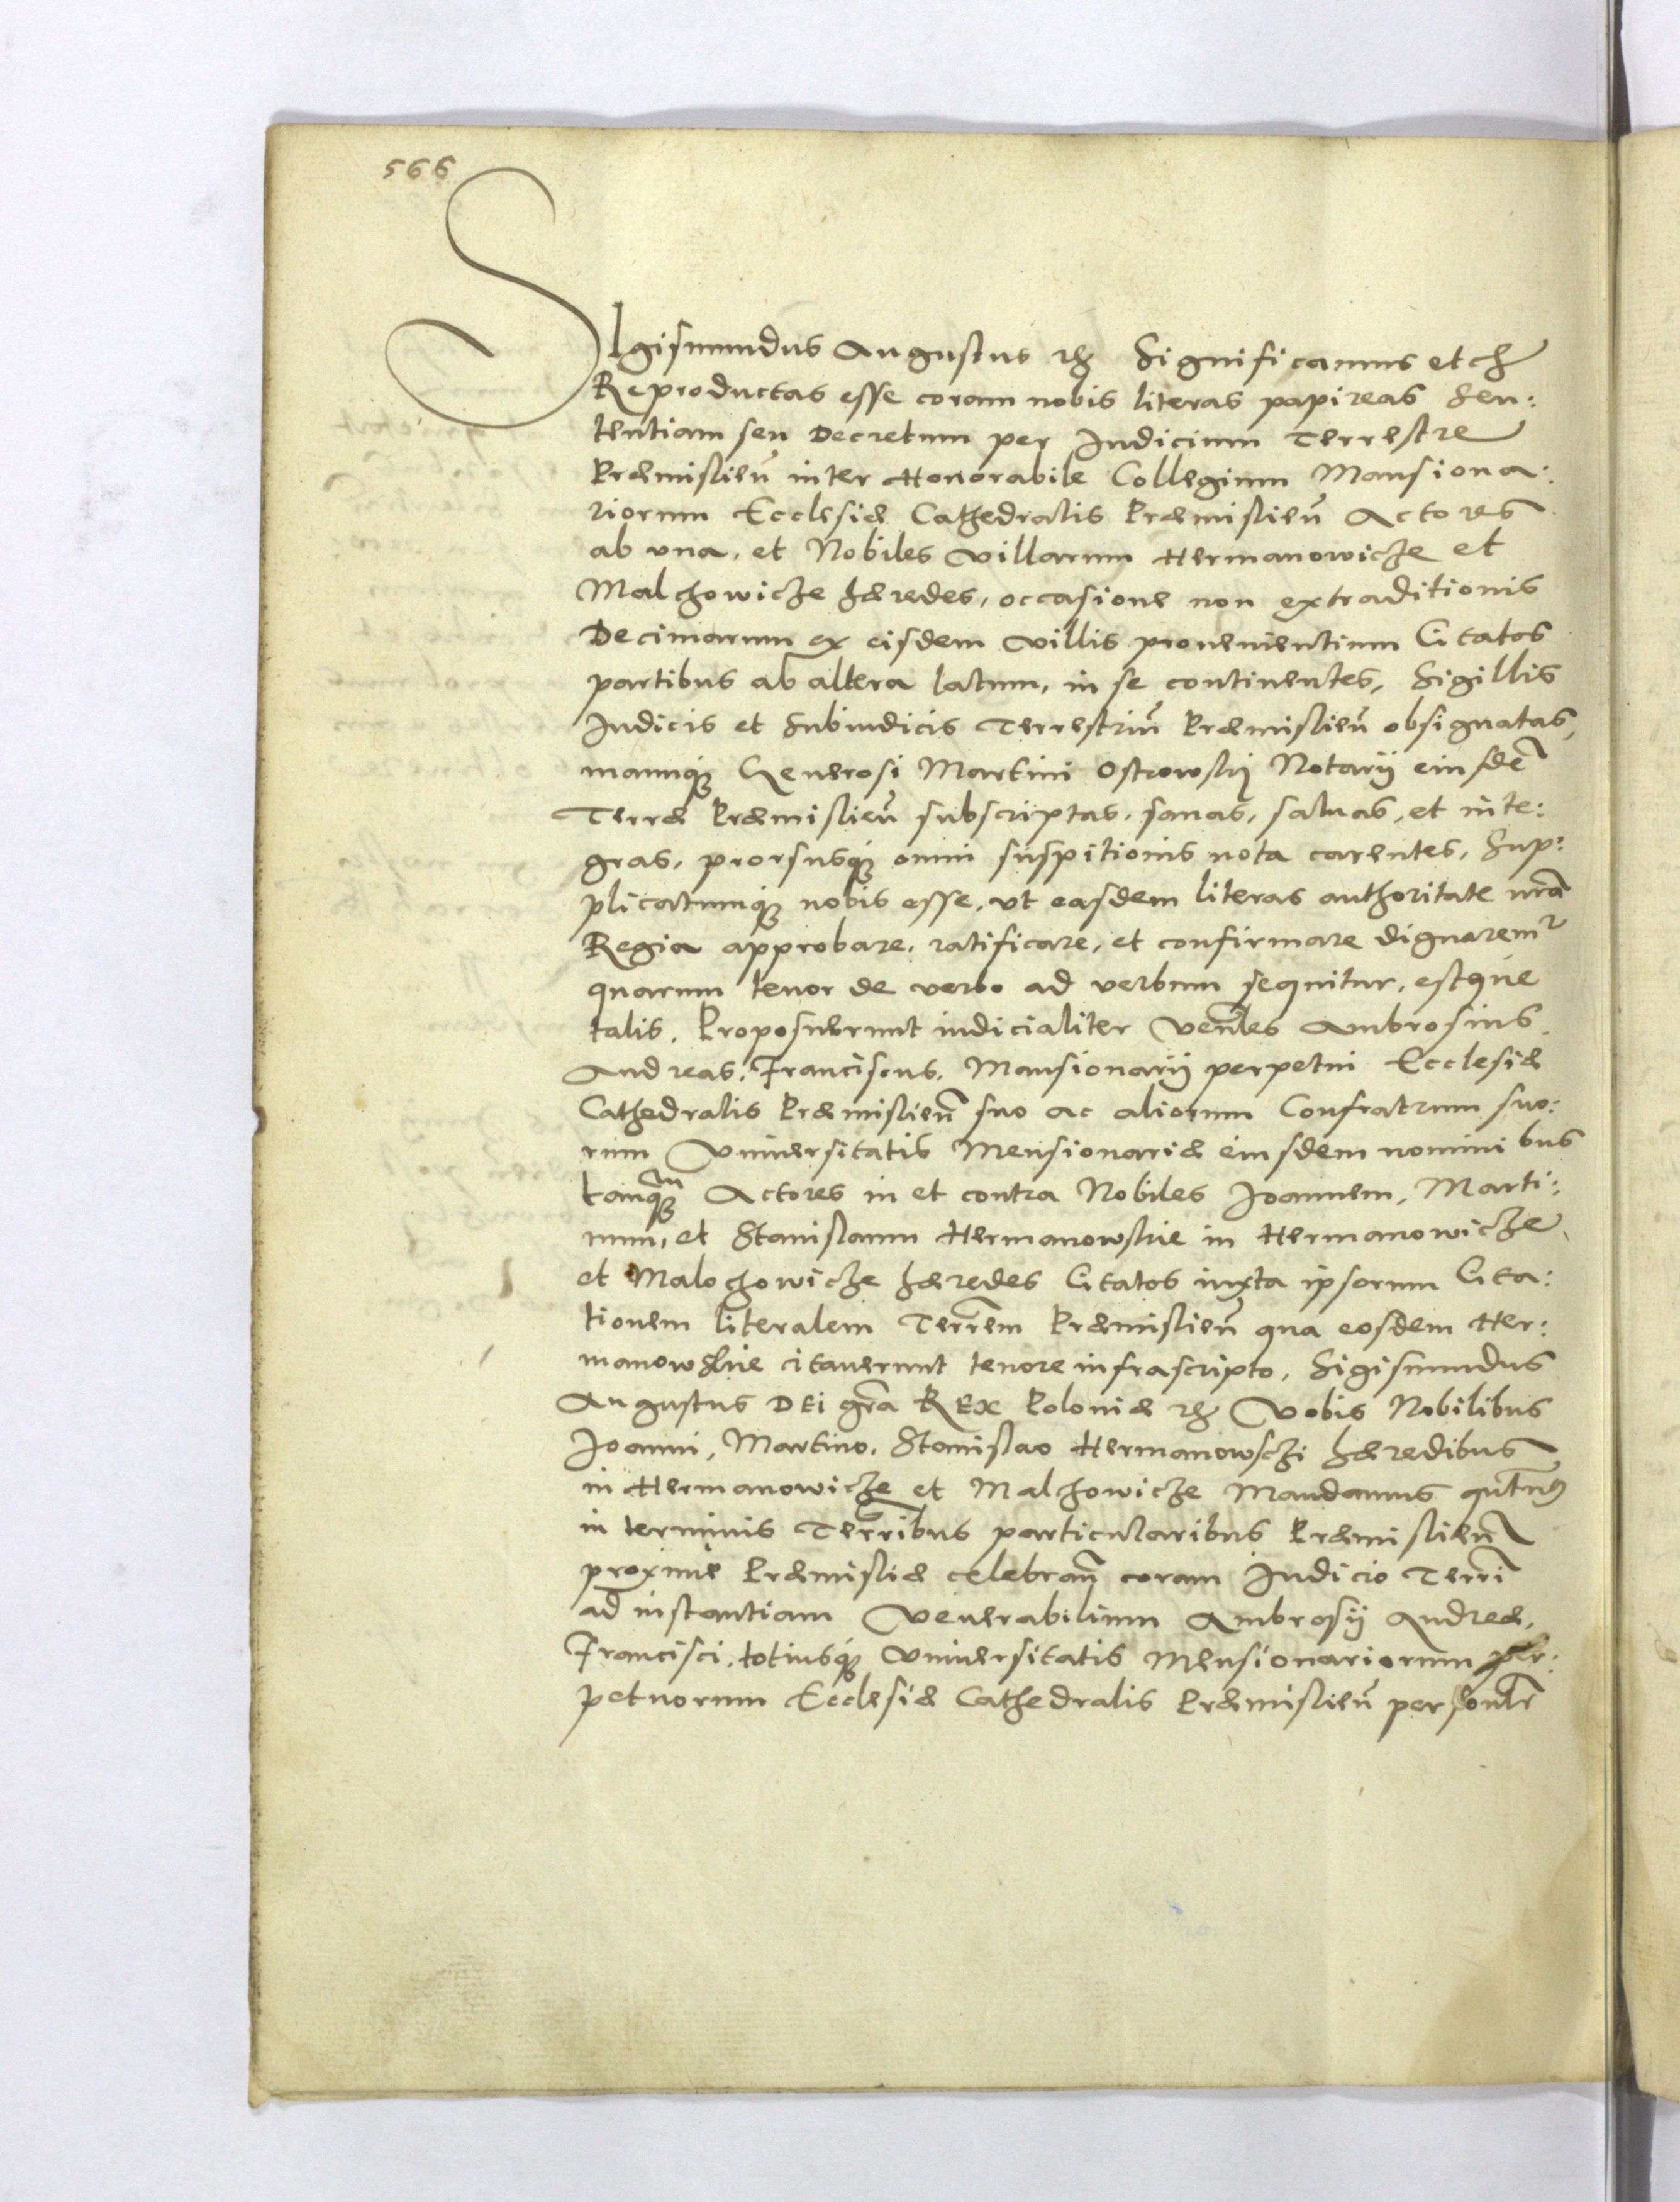 566
SIgismundus Augustus etc Significamus etc
Reproductas esse coram nobis literas papireas Sen:
tentiam seu Decretum per Judicium Terrestre
Præmislień inter Honorabile Collegium Mansiona:
riorum Ecclesiæ Cathedralis Præmislień Actores
ab vna, et Nobiles villarum Hermanowicze et
Malchowicze hæredes, occasione non extraditionis
Decimarum ex eisdem villis prouenientium Citatos
partibus ab altera latum, in se continentes, Sigillis
Judicis et Subiudicis Terrestriũ Præmislień obsignatas,
manuq́ꝫ Generosi Martini Ostrowskÿ Notarij eiusdẽ
Terræ Præmislień subscriptas, sanas, saluas, et inte:
gras, prorsusq́ꝫ omni suspitionis nota carentes, Sup:
plicatumq́ꝫ nobis esse, vt easdem literas authoritate nrã
Regia approbare, ratificare, et confirmare dignaremʳ
quarum tenor de verbo ad verbum sequitur, estque
talis. Proposuerunt iudicialiter Venẽles Ambrosius,
Andreas, Franciscus, Mansionarij perpetui Ecclesiæ
Cathedralis Præmislień suo ac aliorum Confratrum suo:
rum Vniuersitatis Mensionariæ eiusdem nominibus
tanq̃ꝫ Actores in et contra Nobiles Joannem, Marti:
num, et Stanislaum Hermanowskie in Hermanowicze,
et Malochowicze hæredes Citatos iuxta ipsorum Cita:
tionem literalem Terrẽm Præmislień qua eosdem Her:
manowskie citauerunt tenore infrascripto, Sigismundus
Augustus DEi grã REx Poloniæ etc Vobis Nobilibus
Joanni, Martino, Stanislao Hermanowsczi hæredibus
in Hermanowicze et Malchowicze Mandamus qutñꝰ
in terminis Terrĩbus particularibus Præmislień
proxime Præmisliæ celebrań coram Judicio Terrĩ
ad instantiam Venerabilium Ambrosij Andreæ,
Francisci, totiusq́ꝫ Vniuersitatis Mensionariorum per:
petuorum Ecclesiæ Cathedralis Præmislień personlr̃